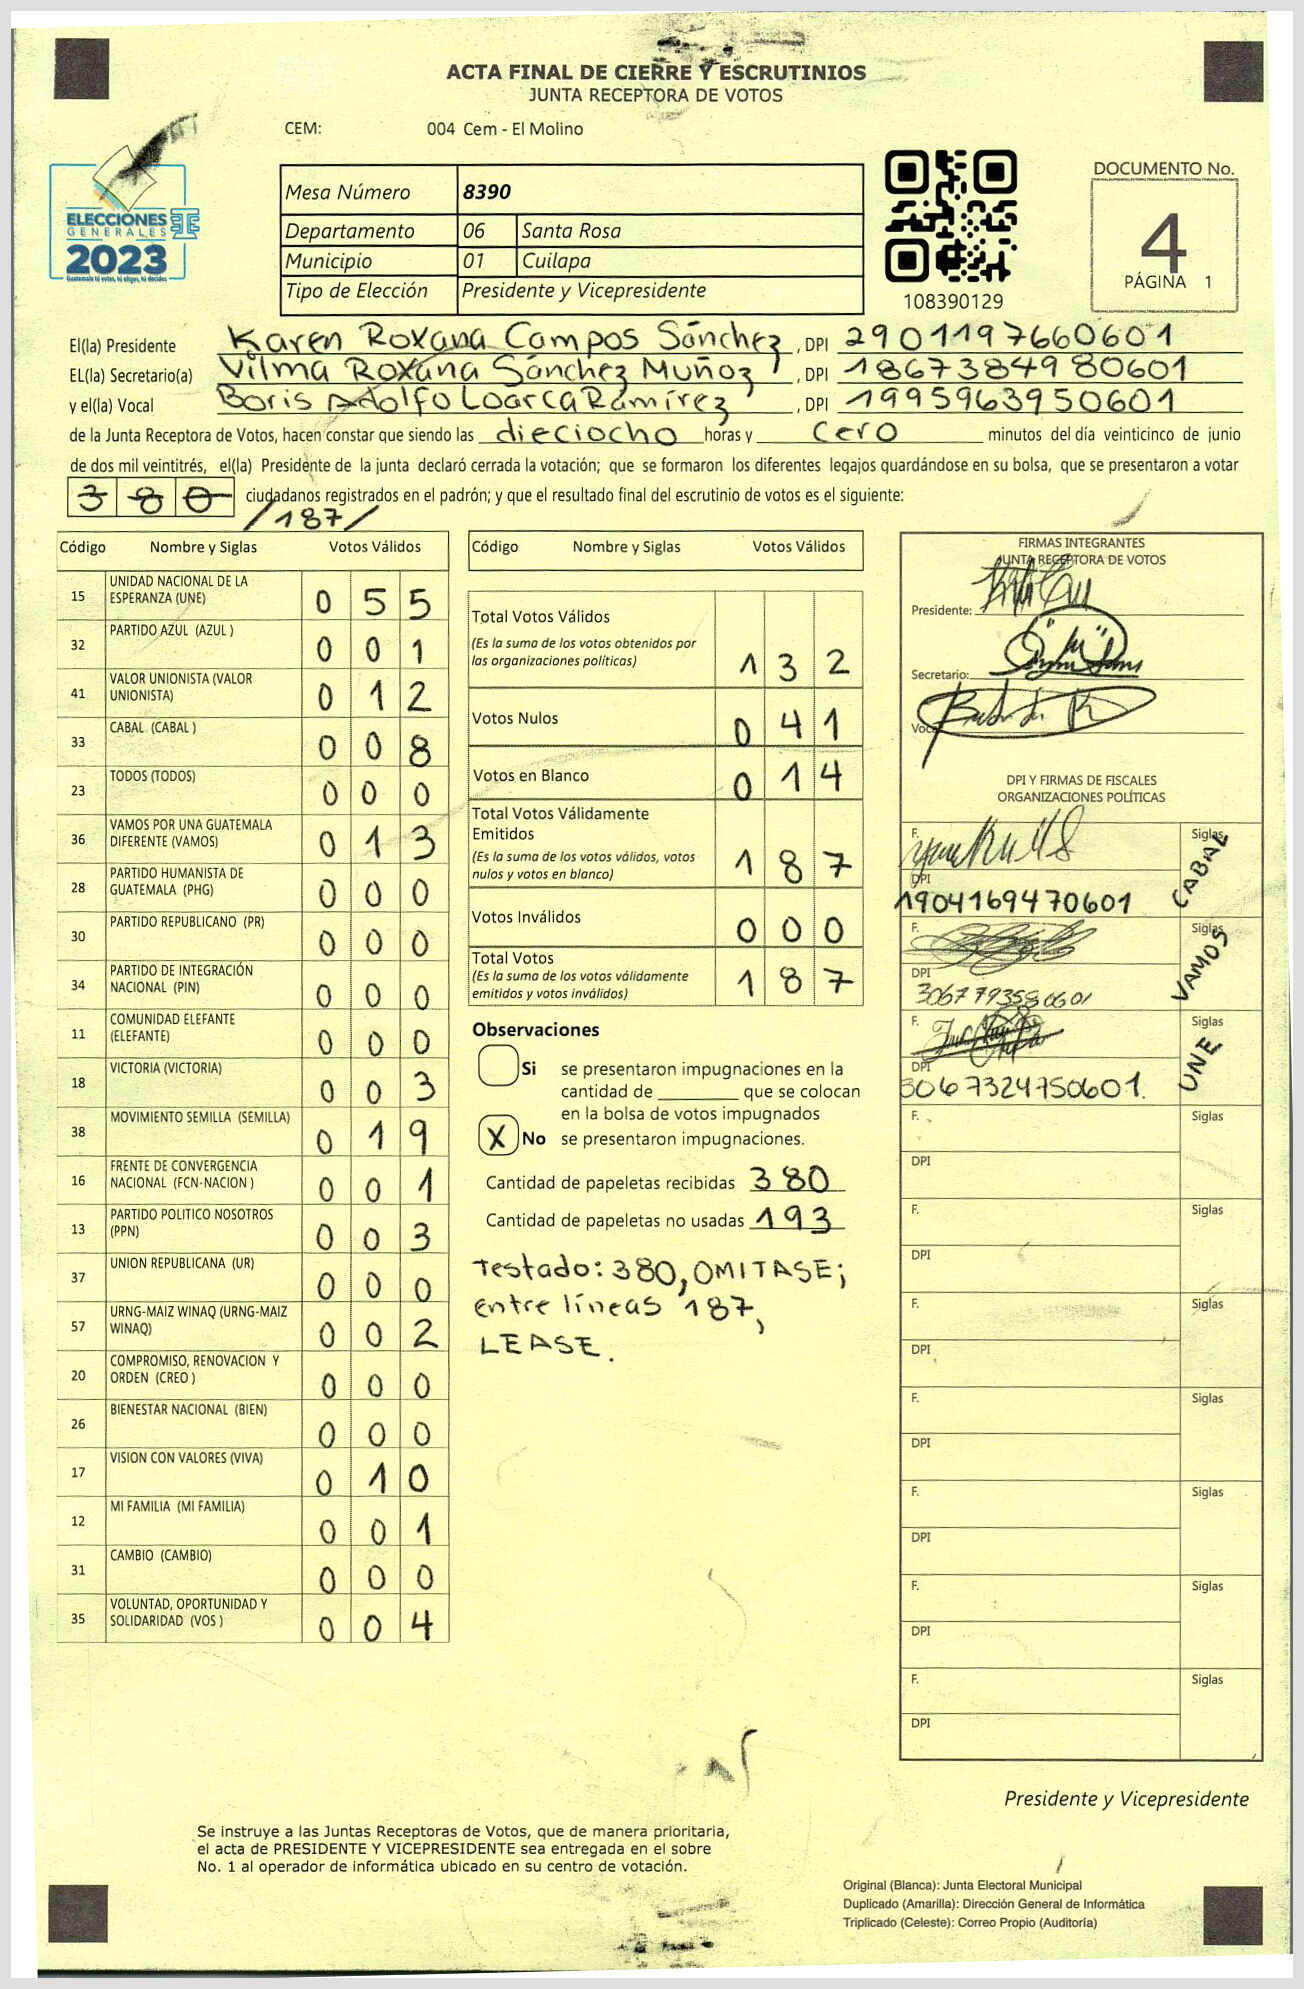 ACTA FINAL DE CIERRE Y ESCRUTINIOS
JUNTA RECEPTORA DE VOTOS
CEM: 004 Cem - El Molino
ELECCIONES
GENERALES
2023
Guatemala tú votas, tú eliges, tú decides
Mesa Número 8390
Departamento 06 Santa Rosa
Municipio 01 Cuilapa
Tipo de Elección Presidente y Vicepresidente
108390129
DOCUMENTO No.
4
PÁGINA 1
El(la) Presidente Karen Roxana Campos Sánchez, DPI 2901197660601
EL(la) Secretario(a) Vilma Roxana Sánchez Muñoz, DPI 1867384980601
y el(la) Vocal Boris Adolfo Loarca Ramírez, DPI 1995963950601
de la Junta Receptora de Votos, hacen constar que siendo las dieciocho horas y cero minutos del día veinticinco de junio
de dos mil veintitrés, el(la) Presidente de la junta declaró cerrada la votación; que se formaron los diferentes legajos guardándose en su bolsa, que se presentaron a votar
380 ciudadanos registrados en el padrón; y que el resultado final del escrutinio de votos es el siguiente:
/187/
Código Nombre y Siglas Votos Válidos
15 UNIDAD NACIONAL DE LA ESPERANZA (UNE) 0 5 5
32 PARTIDO AZUL (AZUL ) 0 0 1
41 VALOR UNIONISTA (VALOR UNIONISTA) 0 1 2
33 CABAL (CABAL ) 0 0 8
23 TODOS (TODOS) 0 0 0
36 VAMOS POR UNA GUATEMALA DIFERENTE (VAMOS) 0 1 3
28 PARTIDO HUMANISTA DE GUATEMALA (PHG) 0 0 0
30 PARTIDO REPUBLICANO (PR) 0 0 0
34 PARTIDO DE INTEGRACIÓN NACIONAL (PIN) 0 0 0
11 COMUNIDAD ELEFANTE (ELEFANTE) 0 0 0
18 VICTORIA (VICTORIA) 0 0 3
38 MOVIMIENTO SEMILLA (SEMILLA) 0 1 9
16 FRENTE DE CONVERGENCIA NACIONAL (FCN-NACION ) 0 0 1
13 PARTIDO POLITICO NOSOTROS (PPN) 0 0 3
37 UNION REPUBLICANA (UR) 0 0 0
57 URNG-MAIZ WINAQ (URNG-MAIZ WINAQ) 0 0 2
20 COMPROMISO, RENOVACION Y ORDEN (CREO ) 0 0 0
26 BIENESTAR NACIONAL (BIEN) 0 0 0
17 VISION CON VALORES (VIVA) 0 1 0
12 MI FAMILIA (MI FAMILIA) 0 0 1
31 CAMBIO (CAMBIO) 0 0 0
35 VOLUNTAD, OPORTUNIDAD Y SOLIDARIDAD (VOS ) 0 0 4
Código Nombre y Siglas Votos Válidos
Total Votos Válidos
(Es la suma de los votos obtenidos por
las organizaciones políticas) 1 3 2
Votos Nulos 0 4 1
Votos en Blanco 0 1 4
Total Votos Válidamente
Emitidos
(Es la suma de los votos válidos, votos
nulos y votos en blanco) 1 8 7
Votos Inválidos 0 0 0
Total Votos
(Es la suma de los votos válidamente
emitidos y votos inválidos) 1 8 7
Observaciones
Si se presentaron impugnaciones en la
cantidad de ________ que se colocan
en la bolsa de votos impugnados
X No se presentaron impugnaciones.
Cantidad de papeletas recibidas 380
Cantidad de papeletas no usadas 193
Testado: 380, OMITASE;
entre líneas 187,
LEASE.
FIRMAS INTEGRANTES
JUNTA RECEPTORA DE VOTOS
Presidente:
Secretario:
Vocal
DPI Y FIRMAS DE FISCALES
ORGANIZACIONES POLÍTICAS
F. Siglas CABAL
DPI
1904169470601
F. Siglas VAMOS
DPI
3067793580601
F. Siglas UNE
DPI
3067324750601.
F. Siglas
DPI
F. Siglas
DPI
F. Siglas
DPI
F. Siglas
DPI
F. Siglas
DPI
F. Siglas
DPI
F. Siglas
DPI
Presidente y Vicepresidente
Se instruye a las Juntas Receptoras de Votos, que de manera prioritaria,
el acta de PRESIDENTE Y VICEPRESIDENTE sea entregada en el sobre
No. 1 al operador de informática ubicado en su centro de votación.
Original (Blanca): Junta Electoral Municipal
Duplicado (Amarilla): Dirección General de Informática
Triplicado (Celeste): Correo Propio (Auditoría)